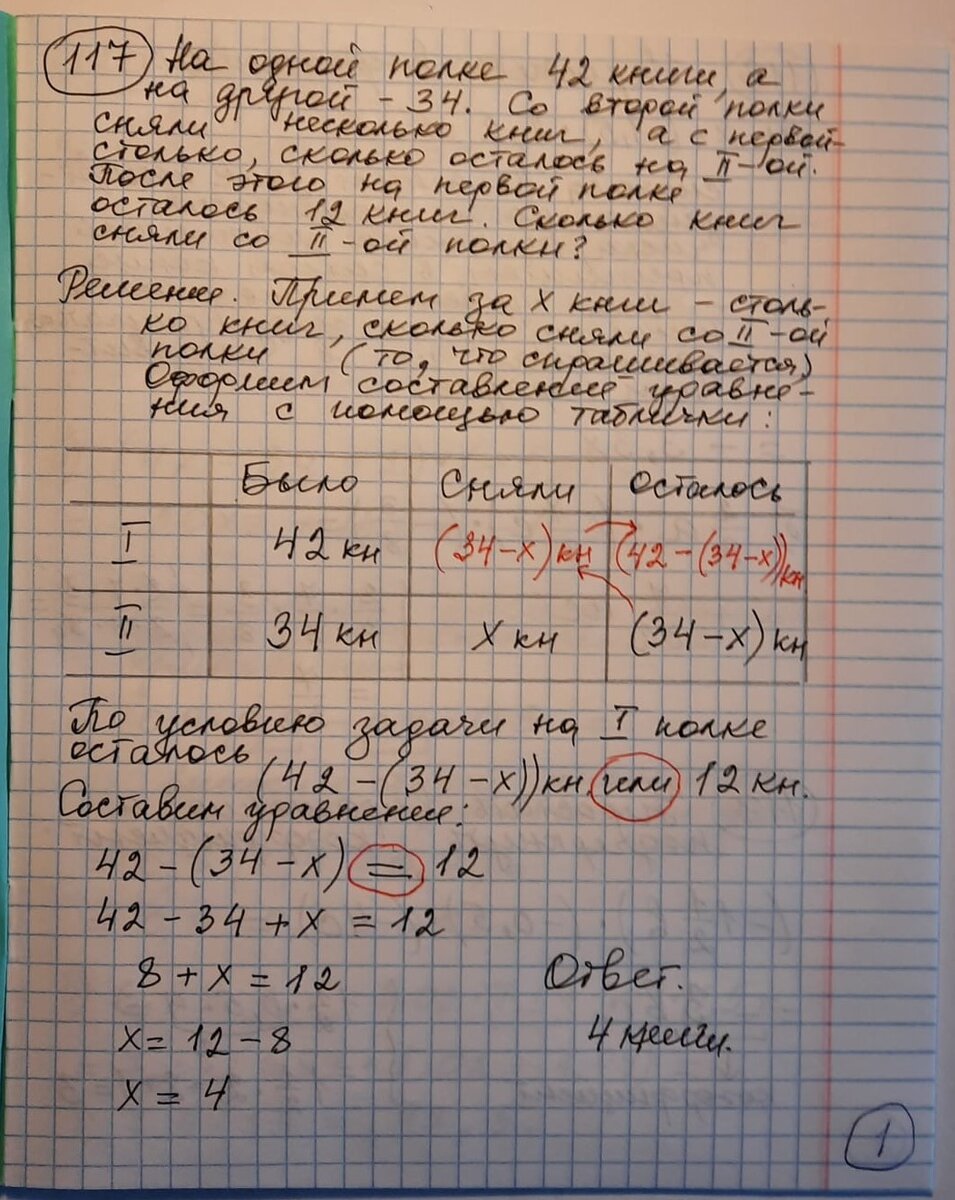 117 На одной полке 42 книги, а
на другой - 34. Со второй полки
сняли несколько книг, а с первой-
столько, сколько осталось на II-ой.
После этого на первой полке
осталось 12 книг. Сколько книг
сняли со II-ой полки?
Решение. Примем за x книг - столь-
ко книг, сколько сняли со II-ой
полки (то, что спрашивается)
Оформим составление уравне-
ния с помощью таблички:
Было Сняли Осталось
I 42 кн (34-x) кн (42-(34-x)) кн
II 34 кн x кн (34-x) кн
По условию задачи на I полке
осталось
(42-(34-x)) кн. или 12 кн.
Составим уравнение:
42-(34-x) = 12
42-34+x = 12
8+x = 12
Ответ.
x = 12-8
4 книги.
x = 4
1